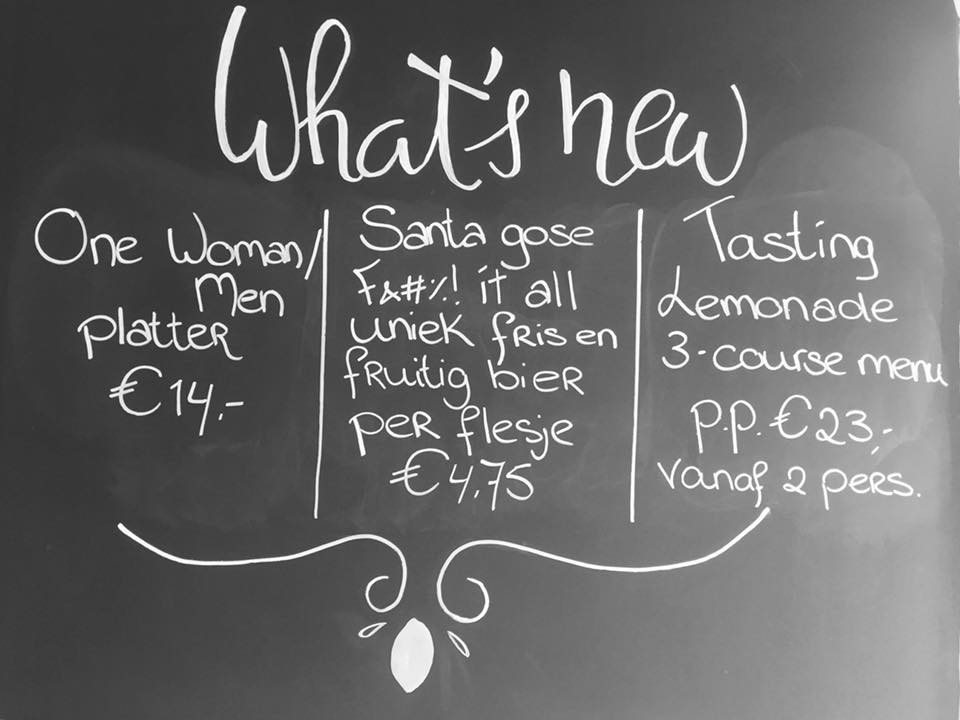 What's new
One Woman/
Men
platter
€14,-
Santa gose
F&#%! it all
uniek fris en
fruitig bier
per flesje
€4,75
Tasting
Lemonade
3-course menu
p.p. €23,-
vanaf 2 pers.